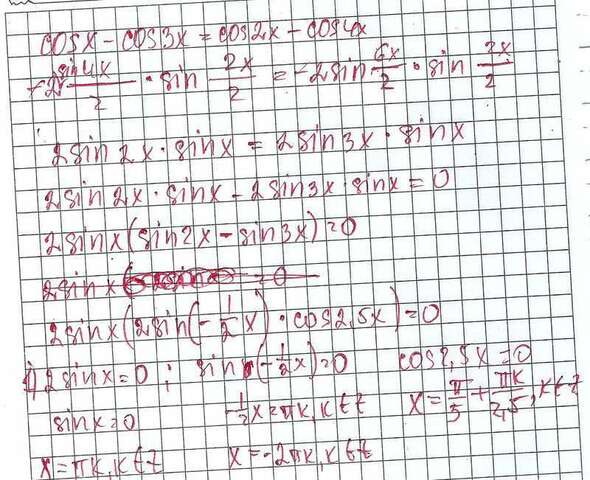 cosx - cos3x = cos2x - cos4x
-2 sin 4x/2 · sin 2x/2 = -2 sin 6x/2 · sin 2x/2
2sin2x · sinx = 2sin3x · sinx
2sin2x · sinx - 2sin3x · sinx = 0
2sinx(sin2x - sin3x) = 0
2sinx( = 0
2sinx(2sin(-1/2 x) · cos2,5x) = 0
1) 2sinx = 0 ; sin(-1/2 x) = 0 cos2,5x = 0
sinx = 0 -1/2 x = πk, k∈z x = π/5 + πk/2,5, k∈z
x = πk, k∈z x = -2πk, k∈z